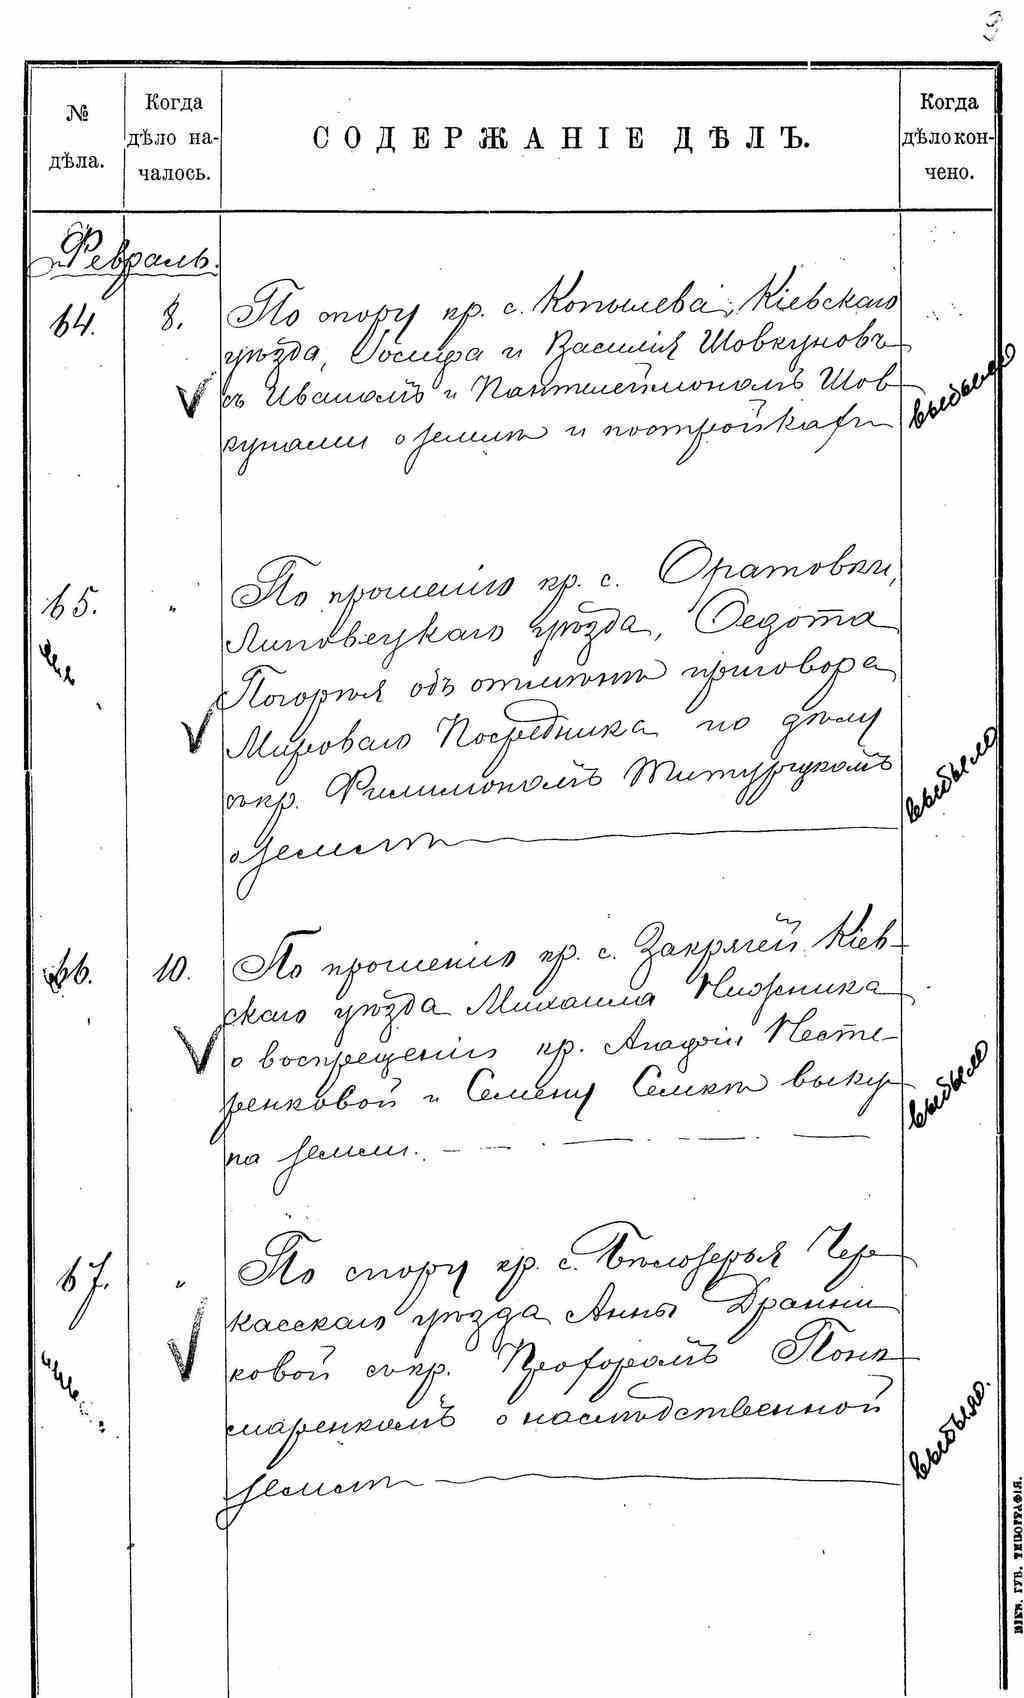 № дѣла.
Когда дѣло на-
чалось.
СОДЕРЖАНІЕ ДѢЛЪ.
Когда дѣло кон-
чено.
Февраль.
64. 8. По спору кр. с. Копылева, Кіевскаго
уѣзда, Іосифа и Василія Шовкуновъ
съ Иваномъ и Пантелеймономъ Шов
кунами о землѣ и постройкахъ
выбыло
65. " По прошенію кр. с. Оратовки,
Липовецкаго уѣзда, Ѳедота
Погорѣля объ отмѣнѣ приговора
Мироваго Посредника по дѣлу
съ кр. Филимономъ
о землѣ
выбыло
66. 10. По прошенію кр. с. Закряжей Кіев-
скаго уѣзда Михаила
о воспрещеніи кр. Агафіи Несте-
ренковой и Семену выку
па земли.
выбыло
67. " По спору кр. с. Бѣлозерья Чер
касскаго уѣзда Анны Дранни
ковой съ кр. Прохоромъ Поно
маренкомъ о наслѣдственной
землѣ
выбыло.
ГУБ. ТИПОГРАФІЯ.